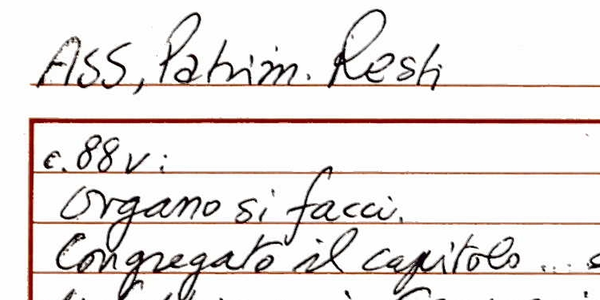 ASS, Patrim. Resti
c. 88v:
Organo si facci.
Congregato il capitolo ...